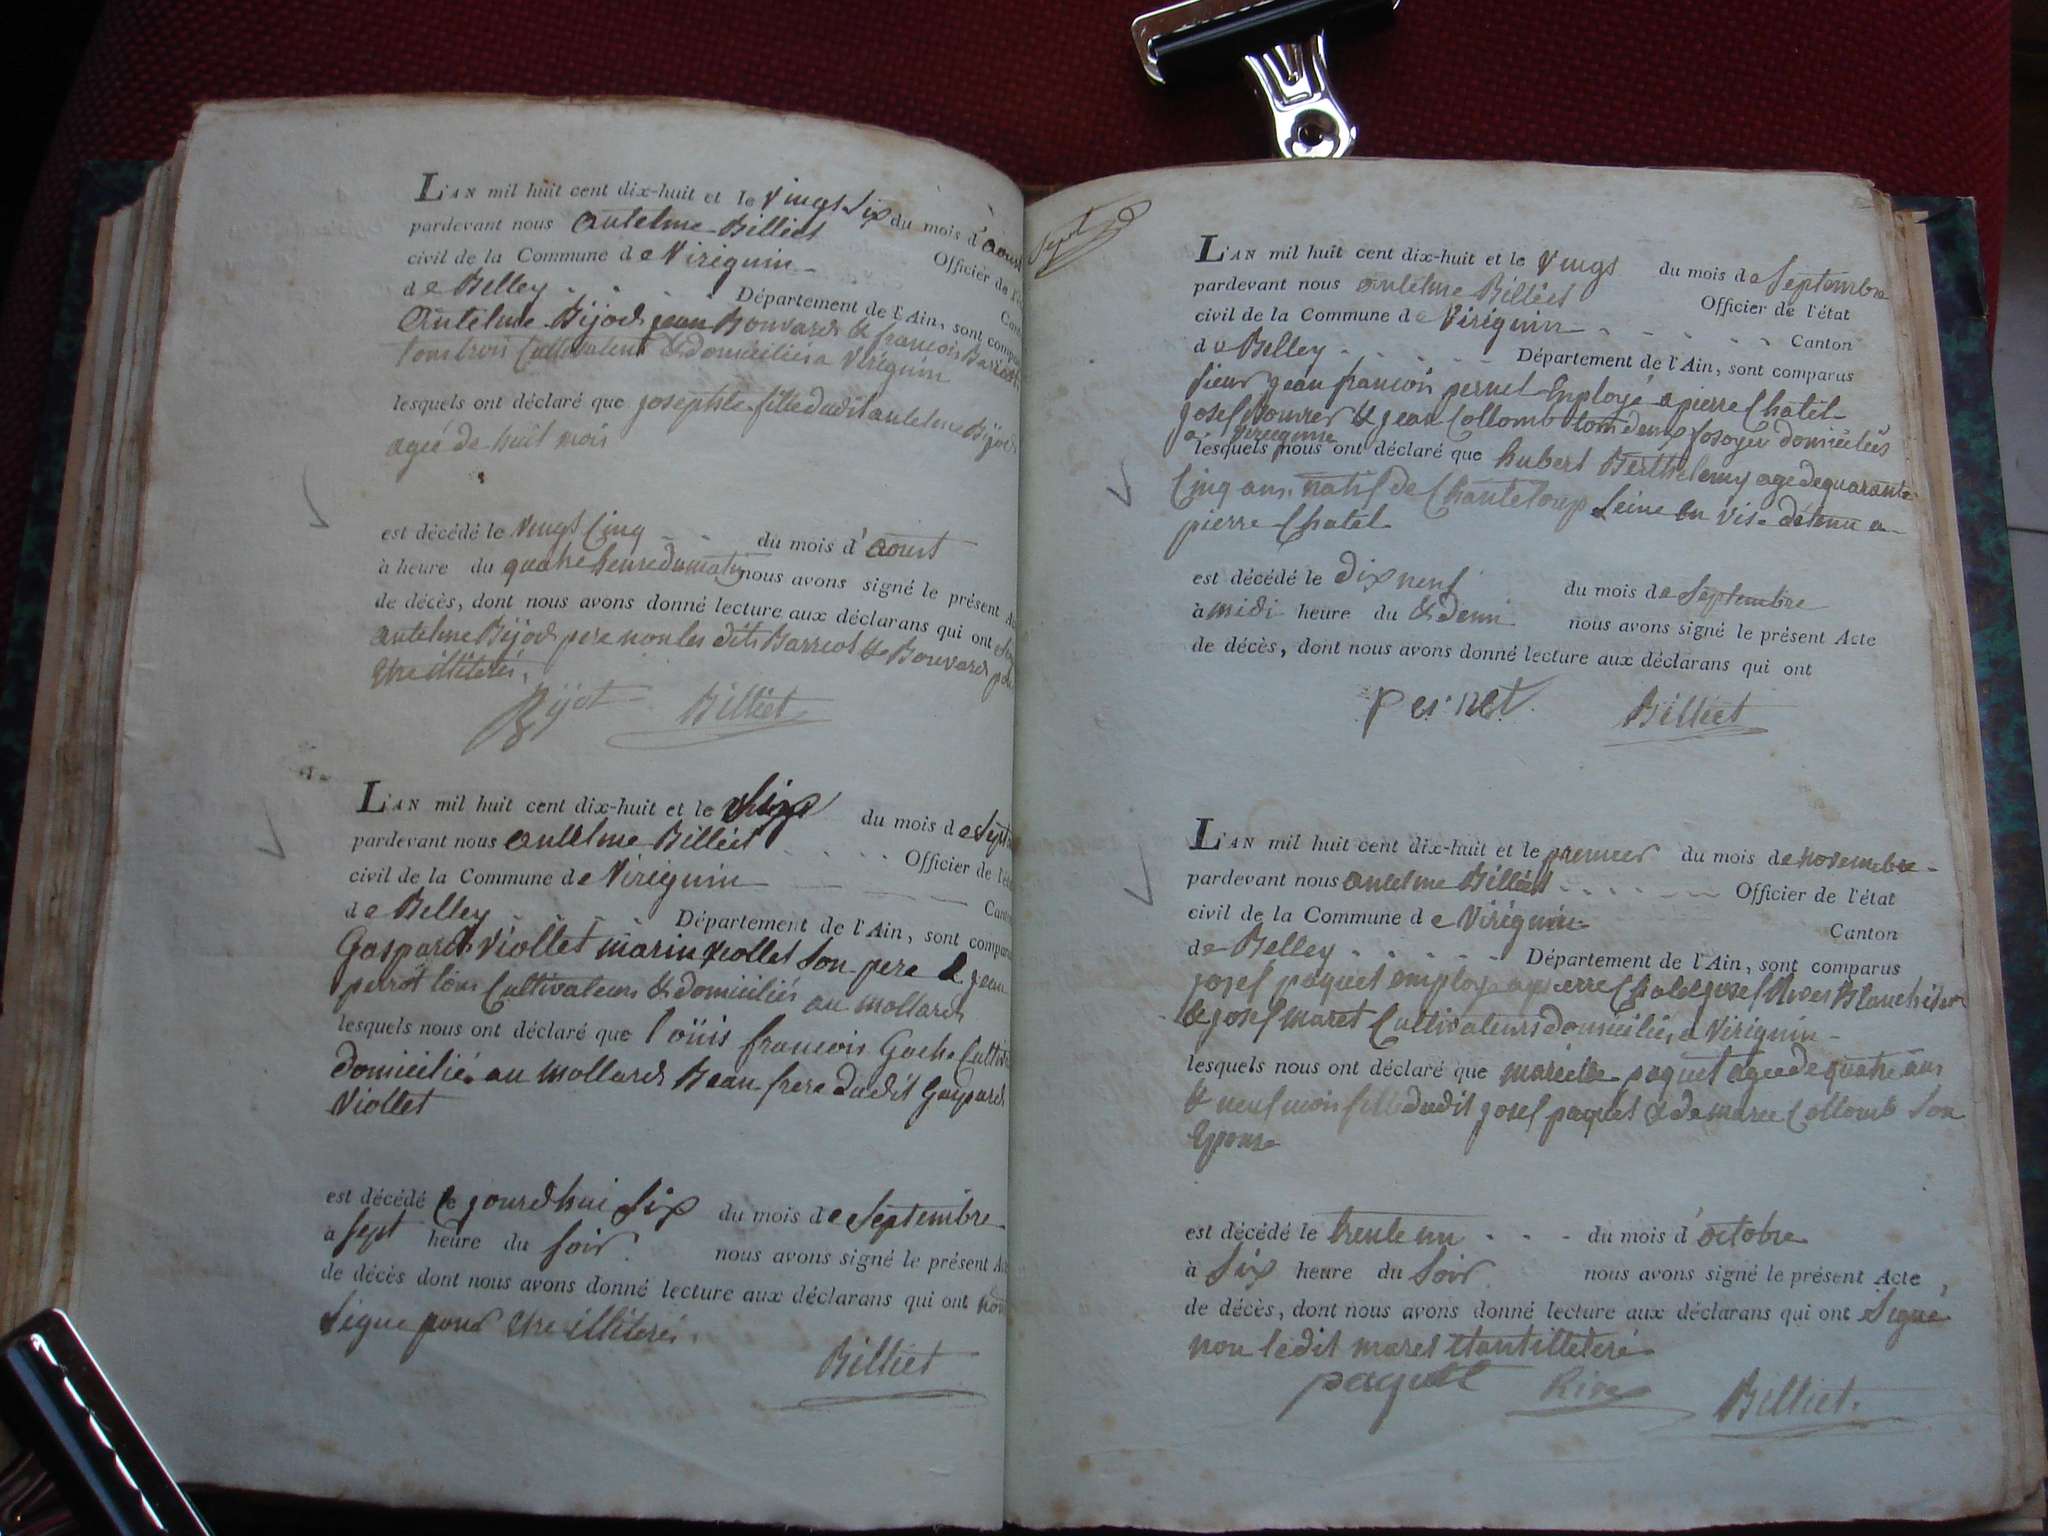 L'AN mil huit cent dix-huit et le vingt six du mois d'aoust
pardevant nous antelme Billiet Officier de l'
civil de la Commune de Virignin
de Belley Département de l'Ain, sont compa
antelme Bijod jean Bouvard & francois
tous trois Cultivateurs & domiciliés a Virignin
lesquels ont déclaré que josephte fille dudit antelme Bijod
agée de huit mois
est décédé le vingt cinq du mois d'aoust
à heure du quatre heure du matin nous avons signé le présent
de décès, dont nous avons donné lecture aux déclarans qui ont
antelme Bijod pere non les dits Barreot & Bouvard
etre illiterés.
Bijot Billiet
L'AN mil huit cent dix-huit et le Six du mois de Sept
pardevant nous antelme Billiet Officier de l'
civil de la Commune de Virignin
de Belley Département de l'Ain, sont compa
Gaspard Viollet marin viollet Son pere & jean
perrot tous Cultivateurs & domiciliés au mollard
lesquels nous ont déclaré que loüis francois Gache Cultiv
domicilié au mollard Beau frere dudit Gaspard
Viollet
est décédé le jourdhui Six du mois de Septembre
à Sept heure du Soir nous avons signé le présent
de décès dont nous avons donné lecture aux déclarans qui ont non
Signe pour etre illiterés.
Billiet
L'AN mil huit cent dix-huit et le vingt du mois de Septembre
pardevant nous antelme Billiet Officier de l'état
civil de la Commune de Virignin Canton
de Belley Département de l'Ain, sont comparus
Sieur jean francois pernet Employé a pierre Chatel
josef Bouvier & jean Collomb tous deux fosoyeur domiciliés
a virignin
lesquels nous ont déclaré que hubert Berthelemy age de quarante
Cinq ans natif de Chanteloup Seine en vise détenu a
pierre Chatel
est décédé le dix neuf du mois de Septembre
à midi heure du & demi nous avons signé le présent Acte
de décès, dont nous avons donné lecture aux déclarans qui ont
pernet Billiet
L'AN mil huit cent dix-huit et le premier du mois de novembre
pardevant nous antelme Billiet Officier de l'état
civil de la Commune de Virignin Canton
de Belley Département de l'Ain, sont comparus
josef paquet employe a pierre Chatel josef Rives Blanchiseur
& josef maret Cultivateurs domiciliés a Virignin
lesquels nous ont déclaré que mariette paquet agée de quatre ans
& neuf mois fille dudit josef paquet & de marie Collomb Son
Epouse
est décédé le trente un du mois d'octobre
à Six heure du Soir nous avons signé le présent Acte
de décès, dont nous avons donné lecture aux déclarans qui ont Signé
non ledit maret etant illeteré
paquet Rive Billiet.